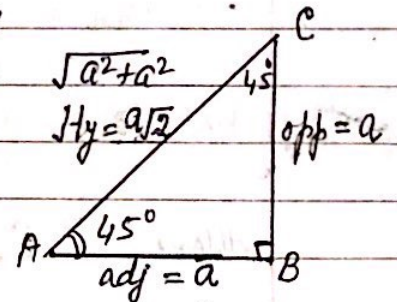 C
√a²+a²
45°
Hy=a√2
opp=a
45°
A
B
adj = a